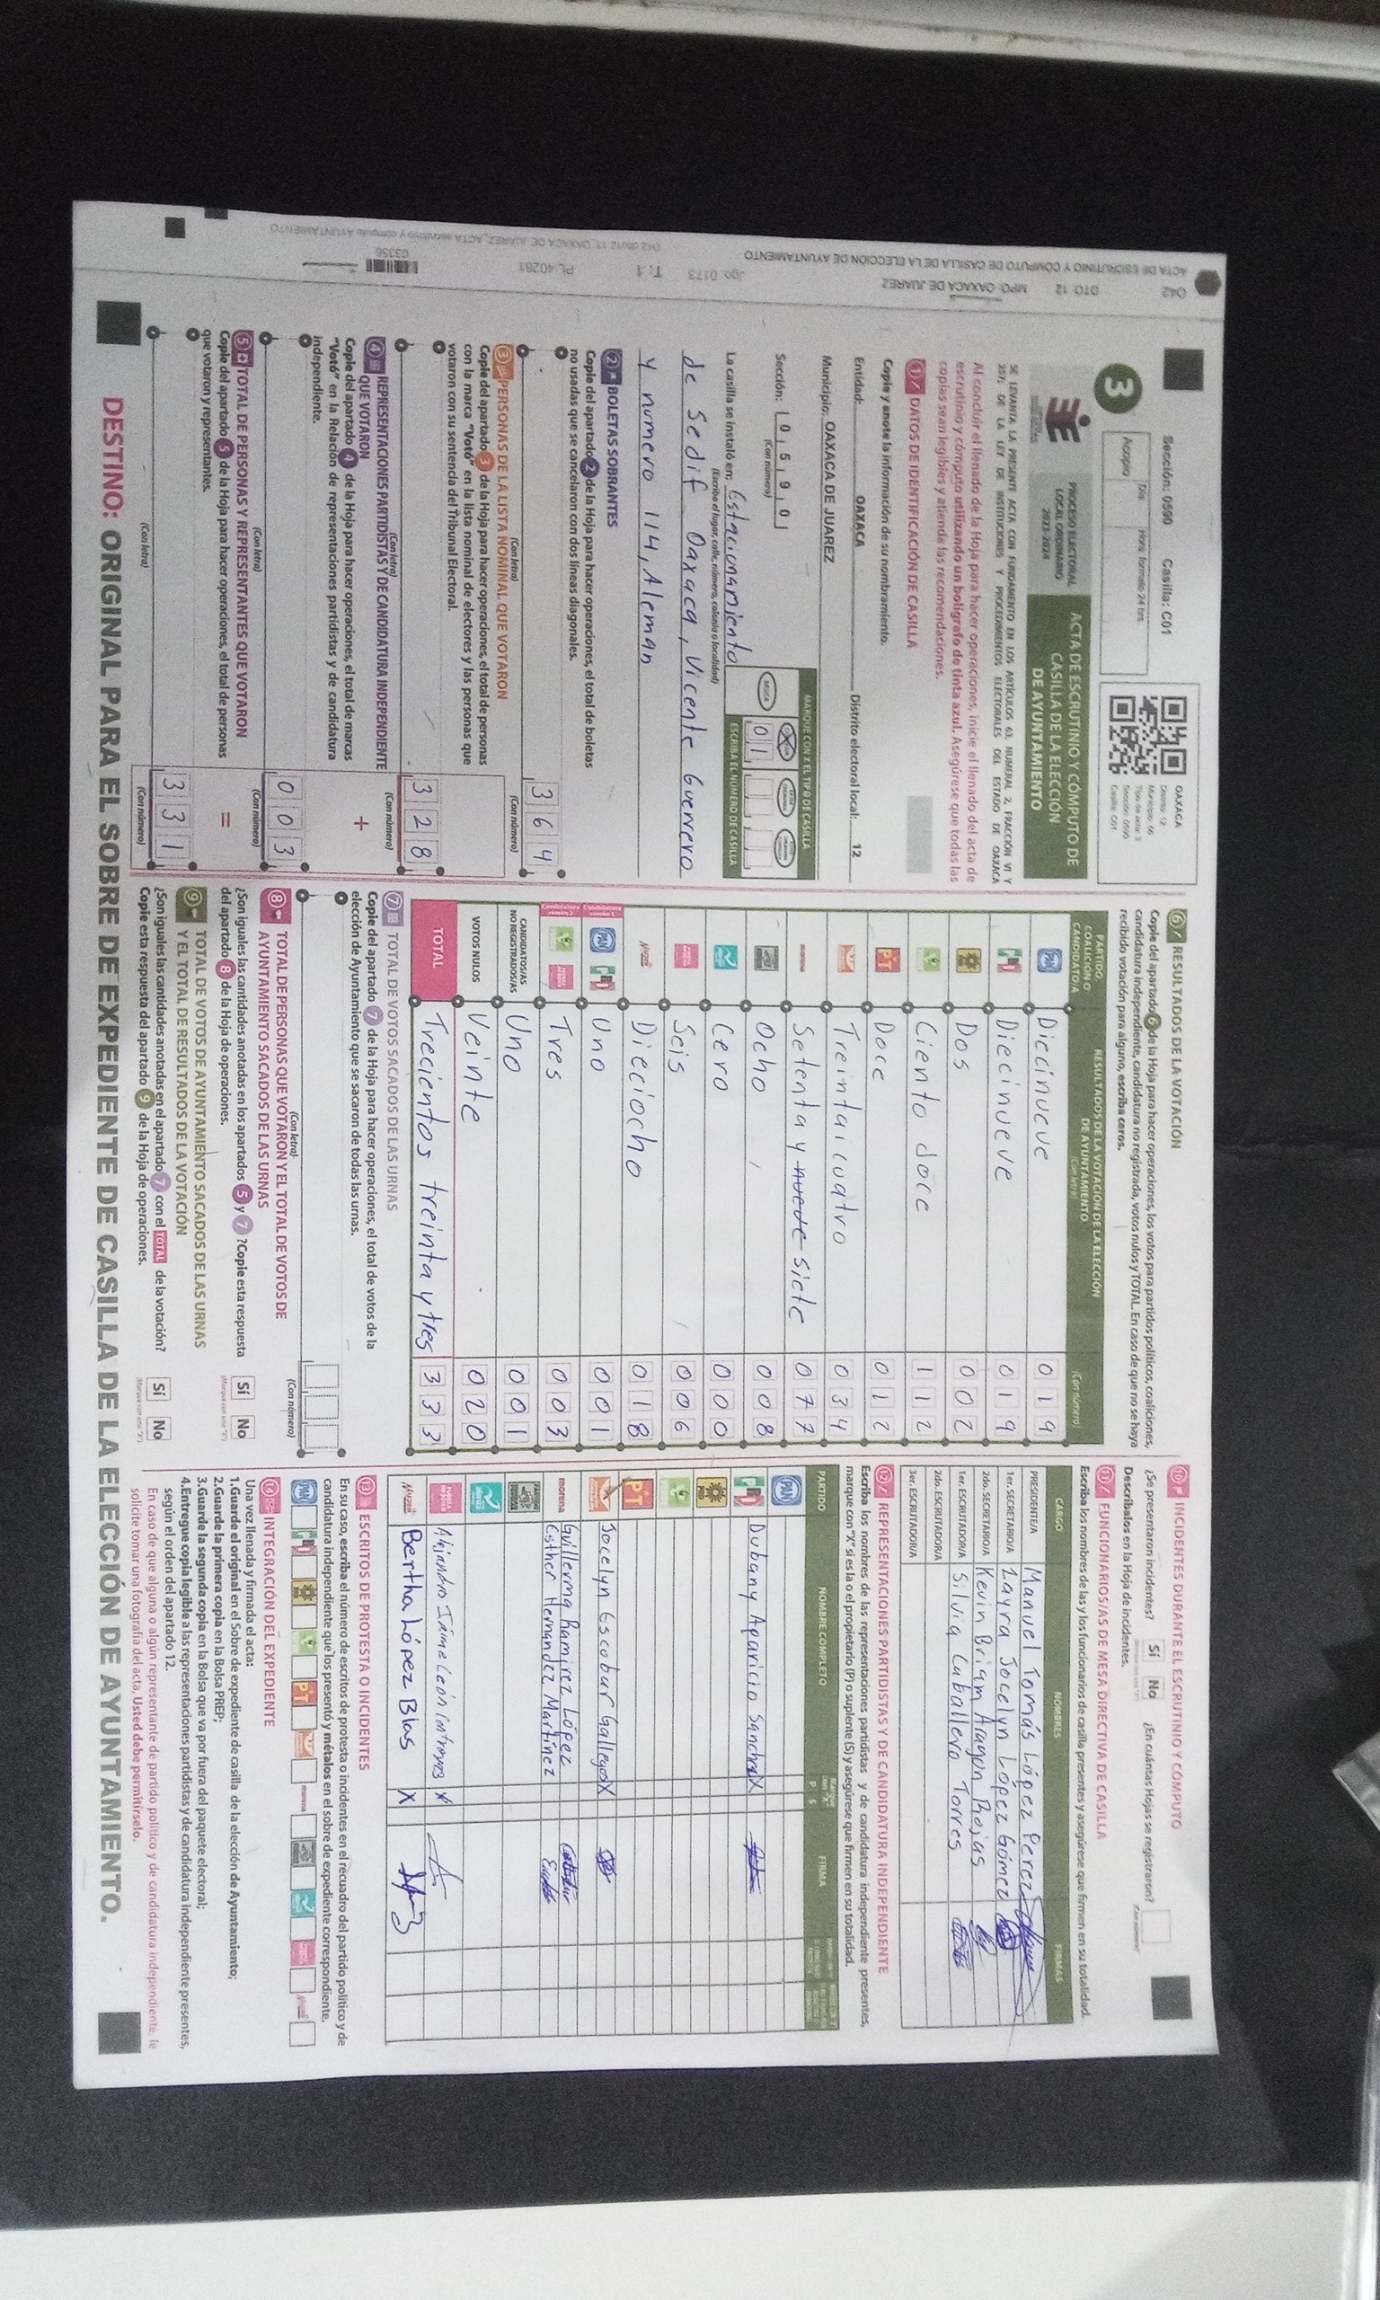 042 DTO: 12 MPO: OAXACA DE JUAREZ
ACTA DE ESCRUTINIO Y CÓMPUTO DE CASILLA DE LA ELECCIÓN DE AYUNTAMIENTO
Jgo: 0173 T: 1 PL:40281
03350
Sección: 0590 Casilla: C01
3
Acopio
Día
Hora formato 24 hrs
OAXACA
Distrito: 12
Municipio: 66
Tipo de acta: 3
Sección: 0590
Casilla: C01
PROCESO ELECTORAL
LOCAL ORDINARIO
2023-2024
ACTA DE ESCRUTINIO Y CÓMPUTO DE
CASILLA DE LA ELECCIÓN
DE AYUNTAMIENTO
SE LEVANTA LA PRESENTE ACTA CON FUNDAMENTO EN LOS ARTÍCULOS 63, NUMERAL 2, FRACCIÓN VI Y
237; DE LA LEY DE INSTITUCIONES Y PROCEDIMIENTOS ELECTORALES DEL ESTADO DE OAXACA
Al concluir el llenado de la Hoja para hacer operaciones, inicie el llenado del acta de
escrutinio y cómputo utilizando un bolígrafo de tinta azul. Asegúrese que todas las
copias sean legibles y atienda las recomendaciones.
1 DATOS DE IDENTIFICACIÓN DE CASILLA
Copie y anote la información de su nombramiento.
Entidad: OAXACA Distrito electoral local: 12
Municipio: OAXACA DE JUAREZ
Sección: 0 5 9 0
(Con número)
MARQUE CON X EL TIPO DE CASILLA
BÁSICA
ESCRIBA EL NÚMERO DE CASILLA
0 1
La casilla se instaló en: Estacionamiento
(Escriba el lugar, calle, número, colonia o localidad)
de Sedif Oaxaca, Vicente Guerrero
y numero 114, Aleman
2 BOLETAS SOBRANTES
Copie del apartado 2 de la Hoja para hacer operaciones, el total de boletas
no usadas que se cancelaron con dos líneas diagonales.
3 6 4
(Con letra) (Con número)
3 PERSONAS DE LA LISTA NOMINAL QUE VOTARON
Copie del apartado 3 de la Hoja para hacer operaciones, el total de personas
con la marca "Votó" en la lista nominal de electores y las personas que
votaron con su sentencia del Tribunal Electoral.
3 2 8
(Con letra) (Con número)
4 REPRESENTACIONES PARTIDISTAS Y DE CANDIDATURA INDEPENDIENTE
QUE VOTARON
+
Copie del apartado 4 de la Hoja para hacer operaciones, el total de marcas
"Votó" en la Relación de representaciones partidistas y de candidatura
independiente.
0 0 3
(Con letra) (Con número)
5 TOTAL DE PERSONAS Y REPRESENTANTES QUE VOTARON
=
Copie del apartado 5 de la Hoja para hacer operaciones, el total de personas
que votaron y representantes.
3 3 1
(Con letra) (Con número)
6 RESULTADOS DE LA VOTACIÓN
Copie del apartado 6 de la Hoja para hacer operaciones, los votos para partidos políticos, coaliciones,
candidatura independiente, candidatura no registrada, votos nulos y TOTAL. En caso de que no se haya
recibido votación para alguno, escriba ceros.
PARTIDO, COALICIÓN O CANDIDATO/A
RESULTADOS DE LA VOTACIÓN DE LA ELECCIÓN
DE AYUNTAMIENTO
(Con letra) (Con número)
PAN Diecinueve 0 1 9
PRI Diecinueve 0 1 9
Dos 0 0 2
Ciento doce 1 1 2
PT Doce 0 1 2
Treintaicuatro 0 3 4
morena Setenta y nueve siete 0 7 7
Ocho 0 0 8
Cero 0 0 0
Seis 0 0 6
Dieciocho 0 1 8
PAN PRI Uno 0 0 1
Tres 0 0 3
CANDIDATOS/AS
NO REGISTRADOS/AS Uno 0 0 1
VOTOS NULOS Veinte 0 2 0
TOTAL Trecientos treinta y tres 3 3 3
7 TOTAL DE VOTOS SACADOS DE LAS URNAS
Copie del apartado 7 de la Hoja para hacer operaciones, el total de votos de la
elección de Ayuntamiento que se sacaron de todas las urnas.
(Con letra) (Con número)
8 TOTAL DE PERSONAS QUE VOTARON Y EL TOTAL DE VOTOS DE
AYUNTAMIENTO SACADOS DE LAS URNAS
¿Son iguales las cantidades anotadas en los apartados 5 y 7 ? Copie esta respuesta
del apartado 8 de la Hoja de operaciones.
Sí No
9 TOTAL DE VOTOS DE AYUNTAMIENTO SACADOS DE LAS URNAS
Y EL TOTAL DE RESULTADOS DE LA VOTACIÓN
¿Son iguales las cantidades anotadas en el apartado 7 con el TOTAL de la votación?
Copie esta respuesta del apartado 9 de la Hoja de operaciones.
Sí No
10 INCIDENTES DURANTE EL ESCRUTINIO Y CÓMPUTO
¿Se presentaron incidentes? Sí No ¿En cuántas Hojas se registraron?
Descríbalos en la Hoja de incidentes.
11 FUNCIONARIOS/AS DE MESA DIRECTIVA DE CASILLA
Escriba los nombres de las y los funcionarios de casilla presentes y asegúrese que firmen en su totalidad.
CARGO NOMBRES FIRMAS
PRESIDENTE/A Manuel Tomás López Perez
1er. SECRETARIO/A Zayra Jocelyn López Gómez
2do. SECRETARIO/A Kevin Brigm Aragon Rojas
1er. ESCRUTADOR/A Silvia Caballero Torres
2do. ESCRUTADOR/A
3er. ESCRUTADOR/A
12 REPRESENTACIONES PARTIDISTAS Y DE CANDIDATURA INDEPENDIENTE
Escriba los nombres de las representaciones partidistas y de candidatura independiente presentes,
marque con "X" si es la o el propietario (P) o suplente (S) y asegúrese que firmen en su totalidad.
PARTIDO NOMBRE COMPLETO P S FIRMA
PAN
Dubany Aparicio Sanchez X
PT
Jocelyn Escobar Gallegos X
morena Guillerma Ramirez López
Esther Hernandez Martinez
Alejandro Jaime León X
Bertha López Blas X
13 ESCRITOS DE PROTESTA O INCIDENTES
En su caso, escriba el número de escritos de protesta o incidentes en el recuadro del partido político y de
candidatura independiente que los presentó y métalos en el sobre de expediente correspondiente.
14 INTEGRACIÓN DEL EXPEDIENTE
Una vez llenada y firmada el acta:
1.Guarde el original en el Sobre de expediente de casilla de la elección de Ayuntamiento;
2.Guarde la primera copia en la Bolsa PREP;
3.Guarde la segunda copia en la Bolsa que va por fuera del paquete electoral;
4.Entregue copia legible a las representaciones partidistas y de candidatura independiente presentes,
según el orden del apartado 12.
En caso de que alguna o algún representante de partido político y de candidatura independiente, le
solicite tomar una fotografía del acta, Usted debe permitírselo.
DESTINO: ORIGINAL PARA EL SOBRE DE EXPEDIENTE DE CASILLA DE LA ELECCIÓN DE AYUNTAMIENTO.